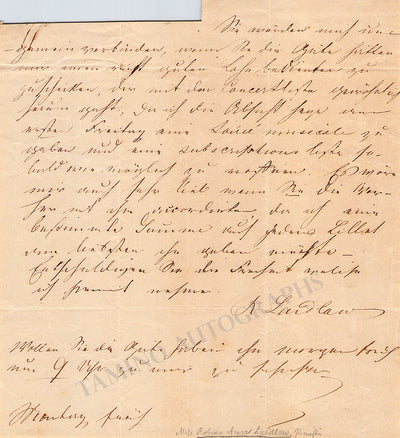 Sie würden mich un-
gemein verbinden, wenn Sie die Güte hätten
mir einen recht guten Lohnbedienten zu
zuschicken, der mit den Concertlisten gewöhnlich
herum geht, da ich die Absicht hege am
ersten Freitag eine Soirée musicale zu
geben und eine subscriptions liste so-
bald wie möglich zu Es wäre
mir auch sehr lieb wenn Sie die
her mit ihm accordirten, da ich eine
bestimmte Summe auf jedes Billet
ihm geben möchte
Entschuldigen Sie die Freiheit welche
ich hiermit nehme.
R Laidlaw
Wollen Sie die Güte haben ihn morgen früh
um 9 Uhr zu mir zu schicken
Montag früh
Miss Robena Anna Laidlaw, Pianistin
TAMINO AUTOGRAPHS